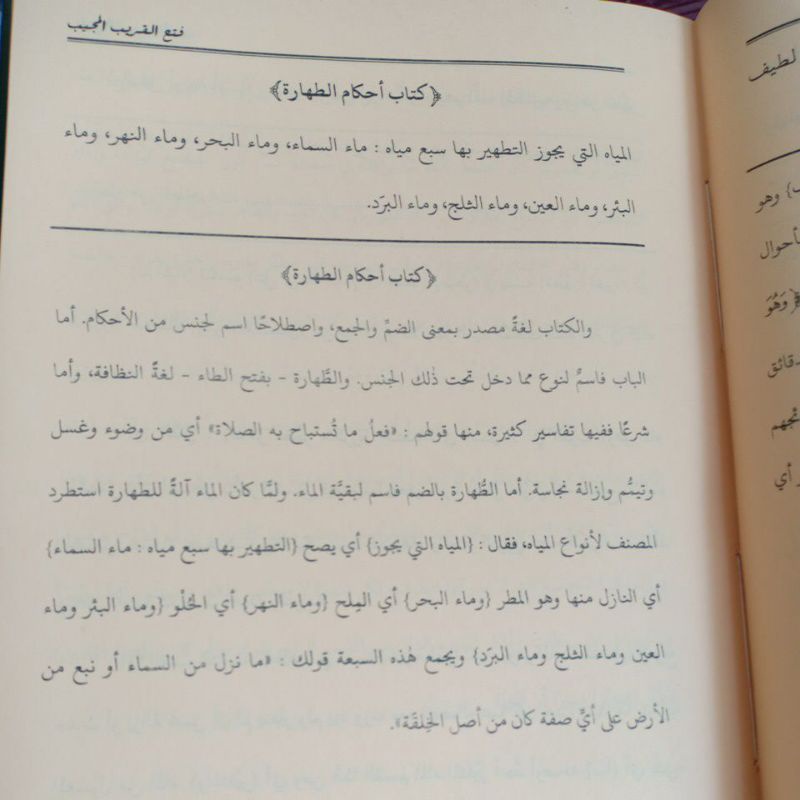 فتح القريب المجيب
﴿كتاب أحكام الطهارة﴾
المياه التي يجوز التطهير بها سبع مياه : ماء السماء، وماء البحر، وماء النهر، وماء
البئر، وماء العين، وماء الثلج، وماء البرَد.
﴿كتاب أحكام الطهارة﴾
والكتاب لغةً مصدر بمعنى الضمِّ والجمع، واصطلاحًا اسم لجنس من الأحكام. أما
الباب فاسمٌ لنوع مما دخل تحت ذٰلك الجنس. والطَّهارة - بفتح الطاء - لغةً النظافة، وأما
شرعًا ففيها تفاسير كثيرة، منها قولهم : «فعلُ ما تُستباح به الصلاة» أي من وضوء وغسل
وتيمُّم وإزالة نجاسة. أما الطُّهارة بالضم فاسم لبقيَّة الماء. ولمَّا كان الماء آلةً للطهارة استطرد
المصنف لأنواع المياه، فقال : {المياه التي يجوز} أي يصح {التطهير بها سبع مياه : ماء السماء}
أي النازل منها وهو المطر {وماء البحر} أي المِلح {وماء النهر} أي الحُلْو {وماء البئر وماء
العين وماء الثلج وماء البرَد} ويجمع هٰذه السبعة قولك : «ما نزل من السماء أو نبع من
الأرض على أيِّ صفة كان من أصل الخِلقَة».
لطيف
وهو
بأحوال
وَهُوَ
دقائق
أي